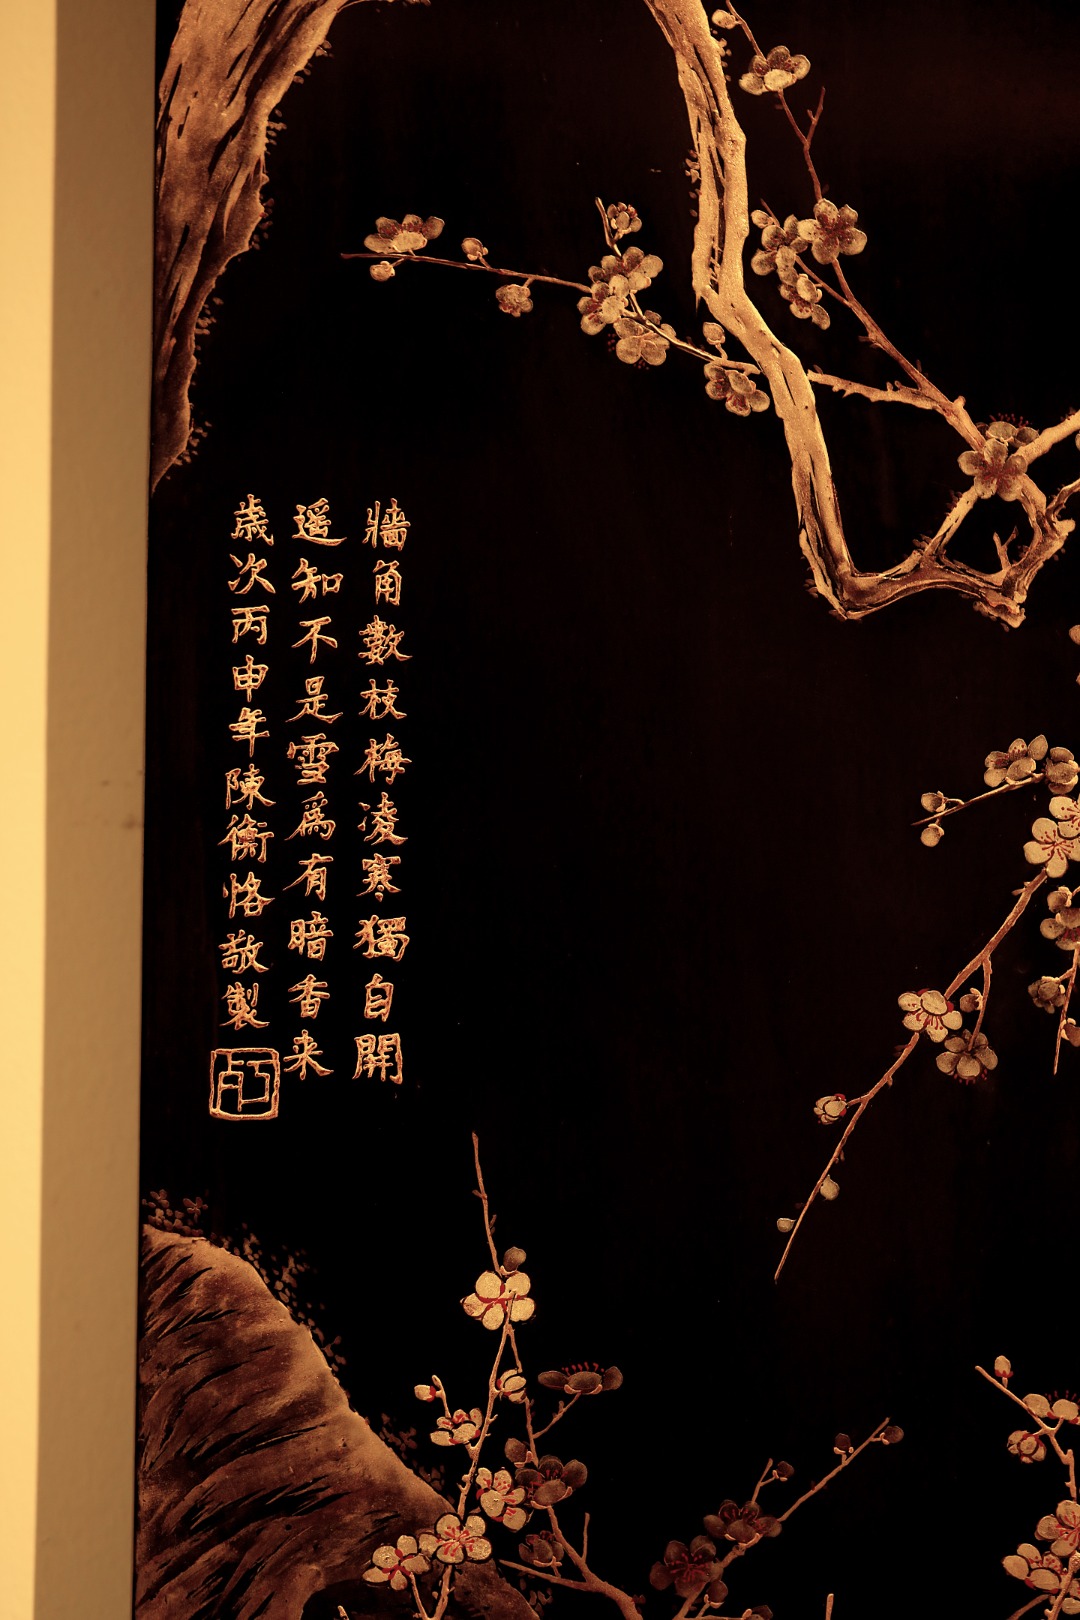 牆角數枝梅凌寒獨自開
遥知不是雪爲有暗香来
歲次丙申年陳衡恪敬製